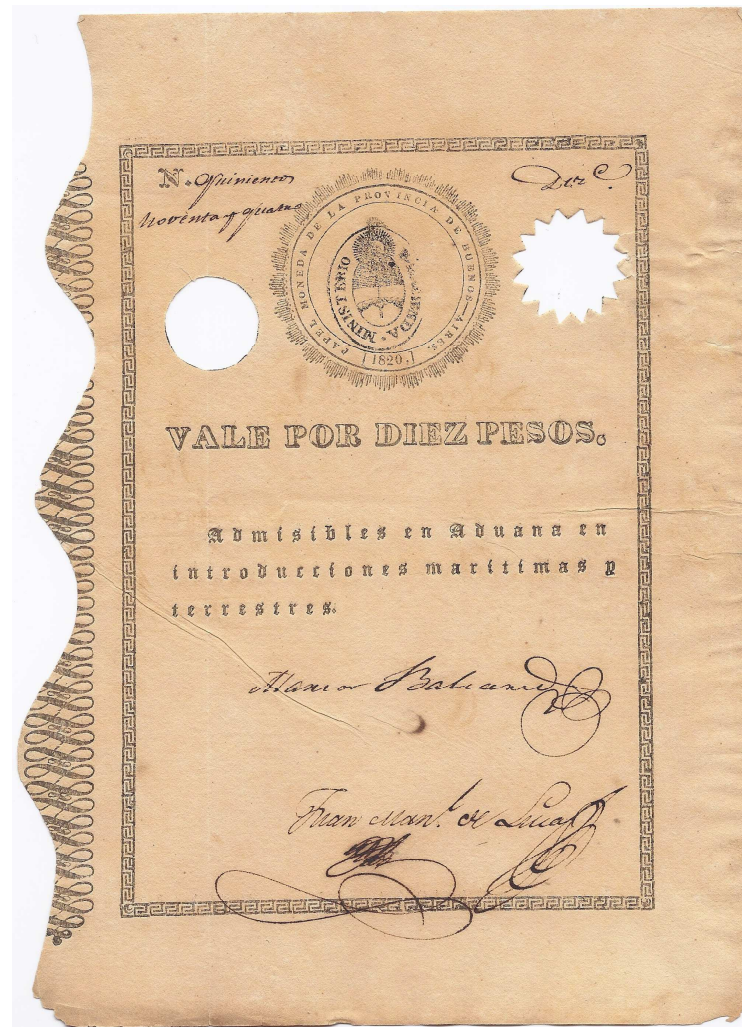 N. Quinientos
noventa y quatro
Diez
PAPEL MONEDA DE LA PROVINCIA DE BUENOS-AIRES.
MINISTERIO
1820.
VALE POR DIEZ PESOS.
Admisibles en Aduana en
introducciones marítimas y
terrestres.
Juan Man.l de Luca